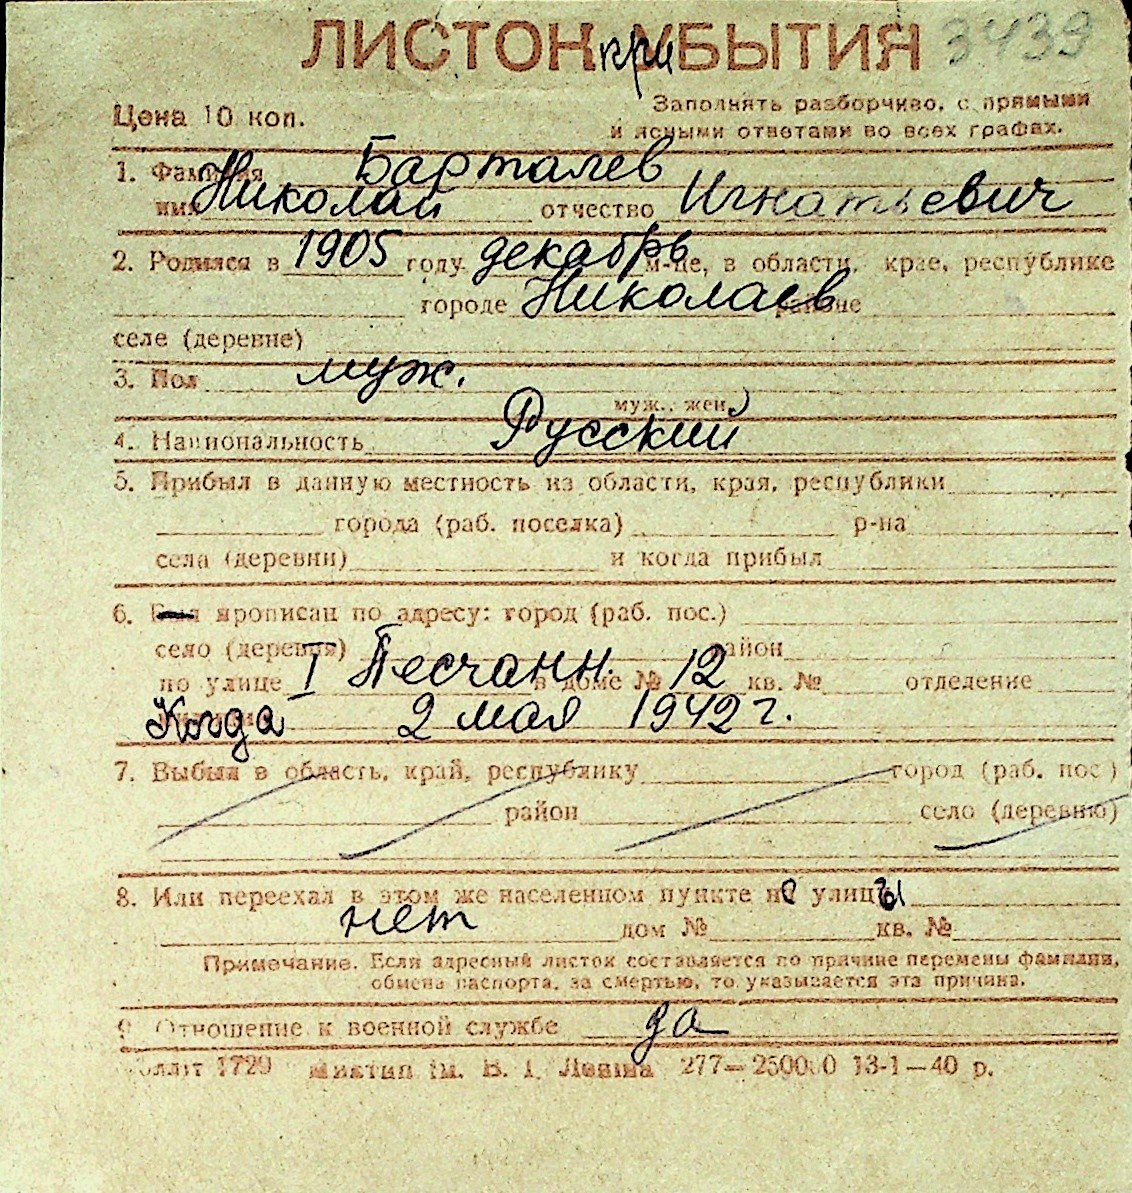 ЛИСТОК при УБЫТИЯ 3439
Цена 10 коп.
Заполнять разборчиво, с прямыми
и ясными ответами во всех графах.
1. Фамилия Барталев
имя Николай отчество Игнатьевич
2. Родился в 1905 году декабрь м-це, в области, крае, республике
городе Николаев районе
селе (деревне)
3. Пол муж.
муж., жен.
4. Национальность Русский
5. Прибыл в данную местность из области, края, республики
города (раб. поселка) р-на
села (деревни) и когда прибыл
6. Был прописан по адресу: город (раб. пос.)
село (деревня) район
по улице I Песчанн. в доме № 12 кв. № отделение
Когда 2 мая 1942 г.
7. Выбыл в область, край, республику город (раб. пос.)
район село (деревню)
8. Или переехал в этом же населенном пункте с улицы
нет дом № кв. №
Примечание. Если адресный листок составляется по причине перемены фамилии,
обмена паспорта, за смертью, то указывается эта причина.
9. Отношение к военной службе да
1729 им. В. І. Леніна 277—250000 13-1—40 р.